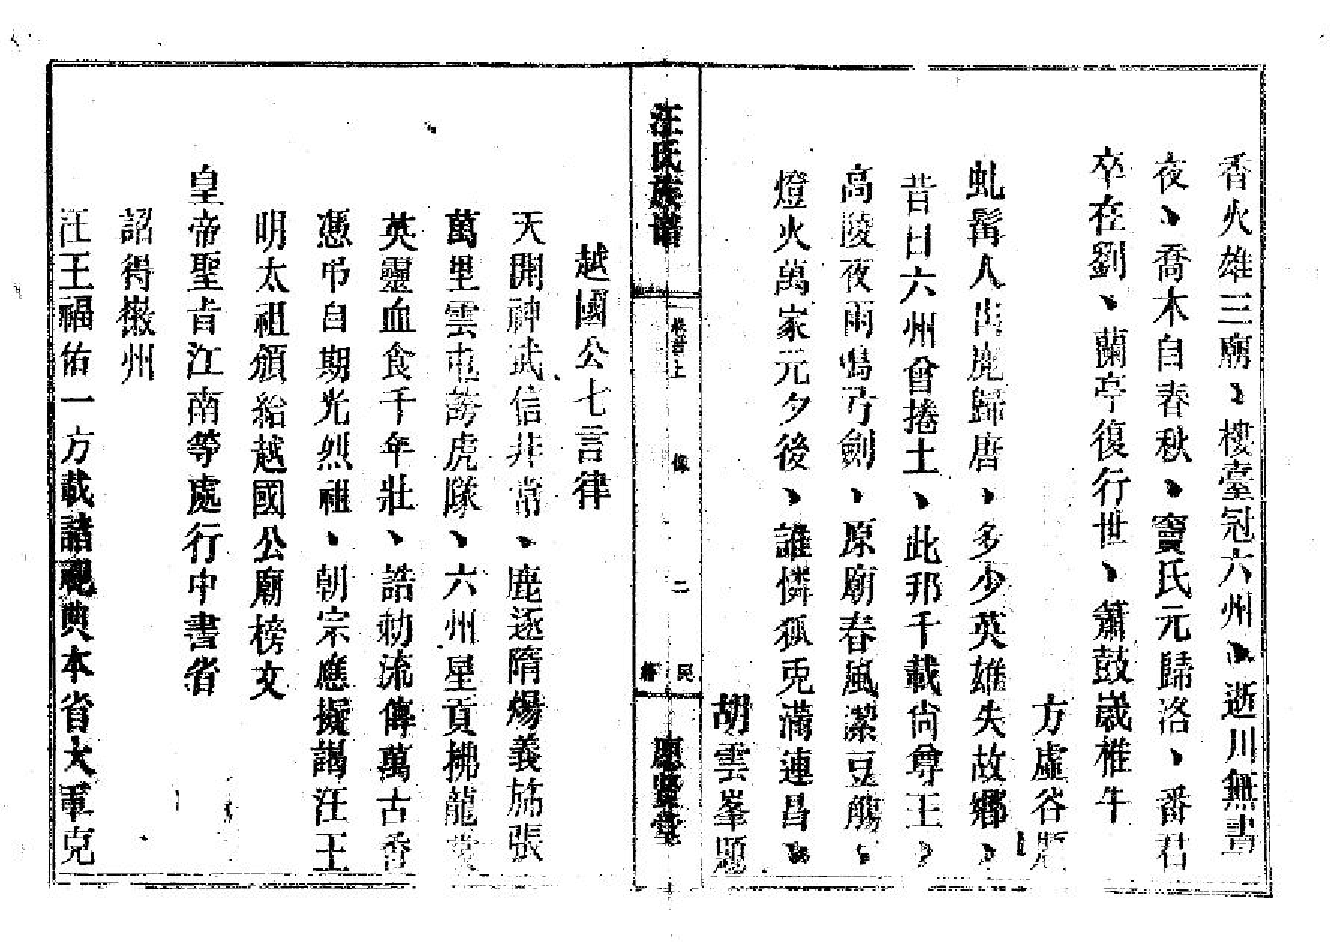 香火雄三廟、樓臺冠六州、逝川無晝
夜、喬木自春秋、竇氏元歸洛、番君
卒在劉、蘭亭復行世、簫鼓歲椎牛
方虛谷題
虬髯人出鹿歸唐、多少英雄失故鄉、
昔日六州曾捲土、此邦千載尚尊王、
高陵夜雨鳴弓劍、原廟春風潔豆觴、
燈火萬家元夕後、誰憐狐兎滿連昌、
胡雲峯題
汪氏族譜
像
二
應賢堂
越國公七言律
天開神武信非常、鹿逐隋煬義旆張
萬里雲屯誇虎隊、六州星貢拂龍
英靈血食千年壯、誥勅流傳萬古香
憑吊自期光烈祖、朝宗應擬謁汪王
明太祖頒給越國公廟榜文
皇帝聖旨江南等處行中書省
詔得徽州
汪王福佑一方載諸祀典本省大軍克